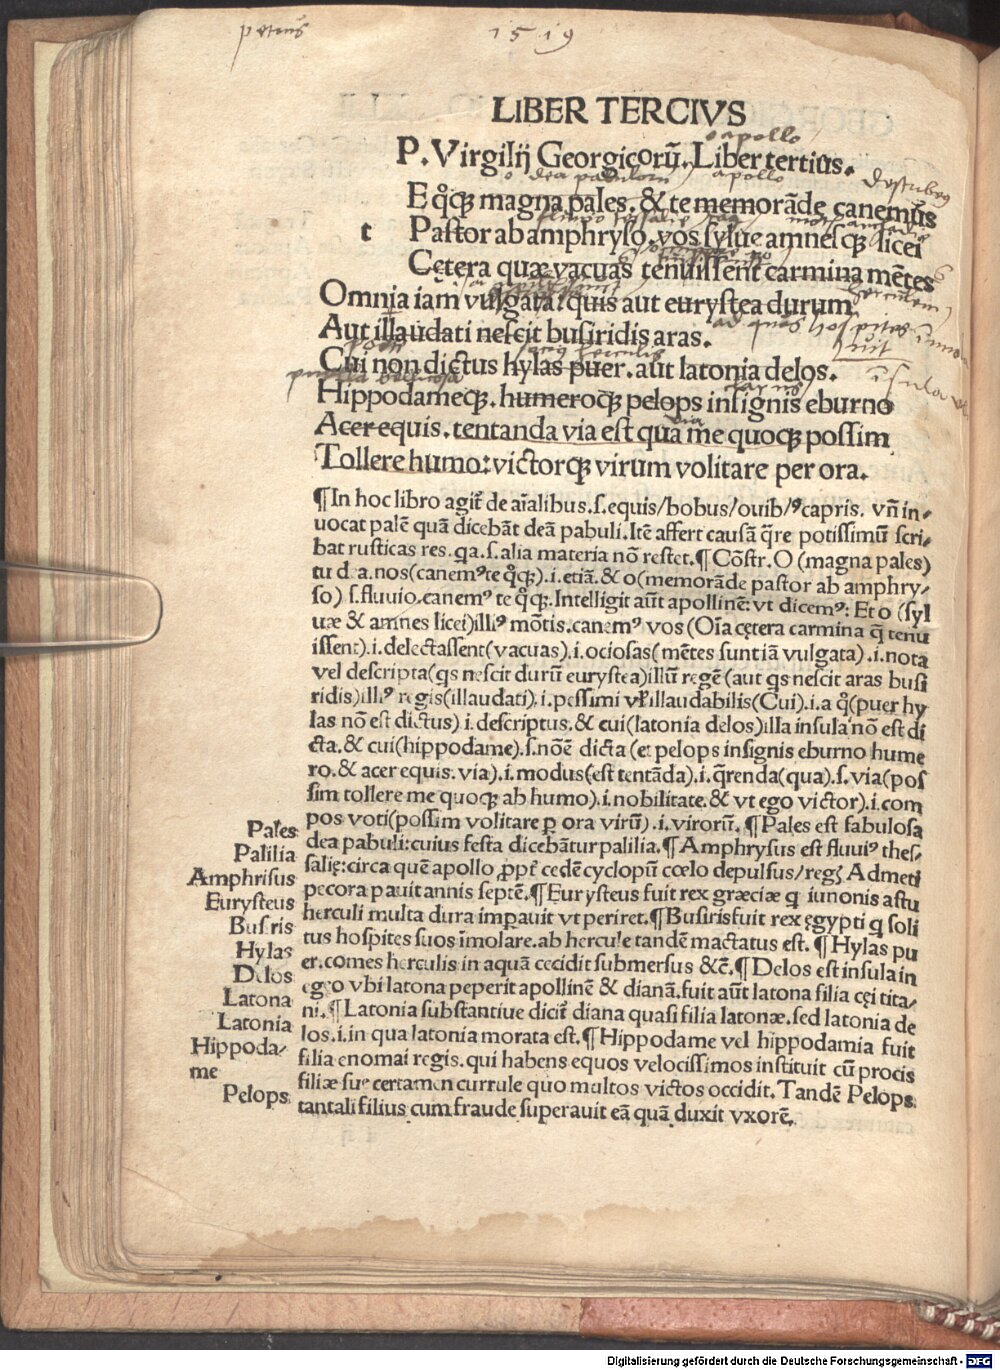 petrus 1519
LIBER TERCIVS
apollo
P. Virgilij Georgicorũ. Liber tertius.
o dea pabulorum apollo
E q̊qꝫ magna pales. & te memorãde canemus
t Pastor ab amphryso. vos syluę amnesqꝫ licei
Cętera quæ vacuas tenuissent carmina mẽtes
Omnia iam vulgata: quis aut eurystea durum
herculem
Aut illaudati nescit busiridis aras.
Cui non dictus hylas puer. aut latonia delos.
insula
Hippodameqꝫ. humeroqꝫ pelops insignis eburno
Acer equis. tentanda via est qua me quoqꝫ possim
via
Tollere humo: victorqꝫ virum volitare per ora.
¶In hoc libro agit̃ de aĩalibus. s. equis/bobus/ouib/⁹capris. vñ in-
uocat palẽ quã dicebãt deã pabuli. Itẽ affert causã q̃re potissimũ scri-
bat rusticas res. qa. s. alia materia nõ restet. ¶Cõstr. O (magna pales)
tu d a. nos(canem⁹te q̊qꝫ). i. etiã. & o(memorãde pastor ab amphry-
so) s. fluuio. canem⁹ te q̊qꝫ. Intelligit aũt apollinẽ: vt dicem⁹: Et o (syl
uæ & amnes licei)illi⁹ mõtis. canem⁹ vos (Oĩa cętera carmina q̃ tenu
issent). i. delectassent(vacuas). i. ociosas(mẽtes sunt iã vulgata). i. nota
vel descripta(qs nescit durũ eurystea)illũ regẽ(aut qs nescit aras busi
ridis)illi⁹ regis(illaudati). i. pessimi vł illaudabilis(Cui). i. a q̊(puer hy
las nõ est dictus) i. descriptus. & cui(latonia delos)illa insula nõ est di
cta. & cui(hippodame). s. nõẽ dicta (et pelops insignis eburno hume
ro. & acer equis. via). i. modus(est tentãda). i. q̃renda(qua). s. via(pos
sim tollere me quoqꝫ ab humo). i. nobilitate. & vt ego victor). i. com
pos voti(possim volitare ꝑ ora virũ). i. virorũ. ¶Pales est fabulosa
dea pabuli: cuius festa dicebãtur palilia. ¶Amphrysus est fluui⁹ thes-
salię: circa quẽ apollo ꝓpt̃ cedẽ cyclopũ cœlo depulsus/regꝭ Admeti
pecora pauit annis septẽ. ¶Eurysteus fuit rex græciæ q iunonis astu
herculi multa dura imꝑauit vt periret. ¶Busiris fuit rex ęgypti q soli
tus hospites suos ĩmolare. ab hercule tandẽ mactatus est. ¶Hylas pu
er. comes herculis in aquã cecidit submersus &c̃. ¶Delos est insula in
egeo vbi latona peperit apollinẽ & dianã. fuit aũt latona filia cęi tita-
ni. ¶Latonia substantiue dicit̃ diana quasi filia latonæ. sed latonia de
los. i. in qua latonia morata est. ¶Hippodame vel hippodamia fuit
filia enomai regis. qui habens equos velocissimos instituit cũ procis
filiæ suę certamen currule quo multos victos occidit. Tandẽ Pelops
tantali filius cum fraude superauit eã quã duxit vxorẽ.
Pales
Palilia
Amphrisus
Eurysteus
Busiris
Hylas
Delos
Latona
Latonia
Hippoda-
me
Pelops
Digitalisierung gefördert durch die Deutsche Forschungsgemeinschaft - DFG